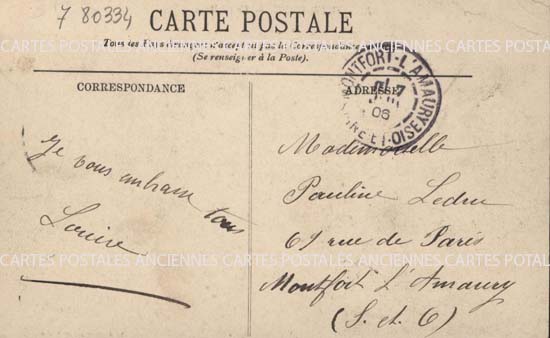 7 80334
CARTE POSTALE
Tous les Pays étrangers n'acceptent pas la Correspondance
(Se renseigner à la Poste).
CORRESPONDANCE
ADRESSE
MONTFORT-L'AMAURY
06
SEINE-ET-OISE
Je vous embrasse tous
Louise
Mademoiselle
Pauline Ledru
69 rue de Paris
Montfort L'Amaury
(S. et O)
CARTES POSTALES ANCIENNES CARTES POSTALES ANCIENNES CARTES POSTALES